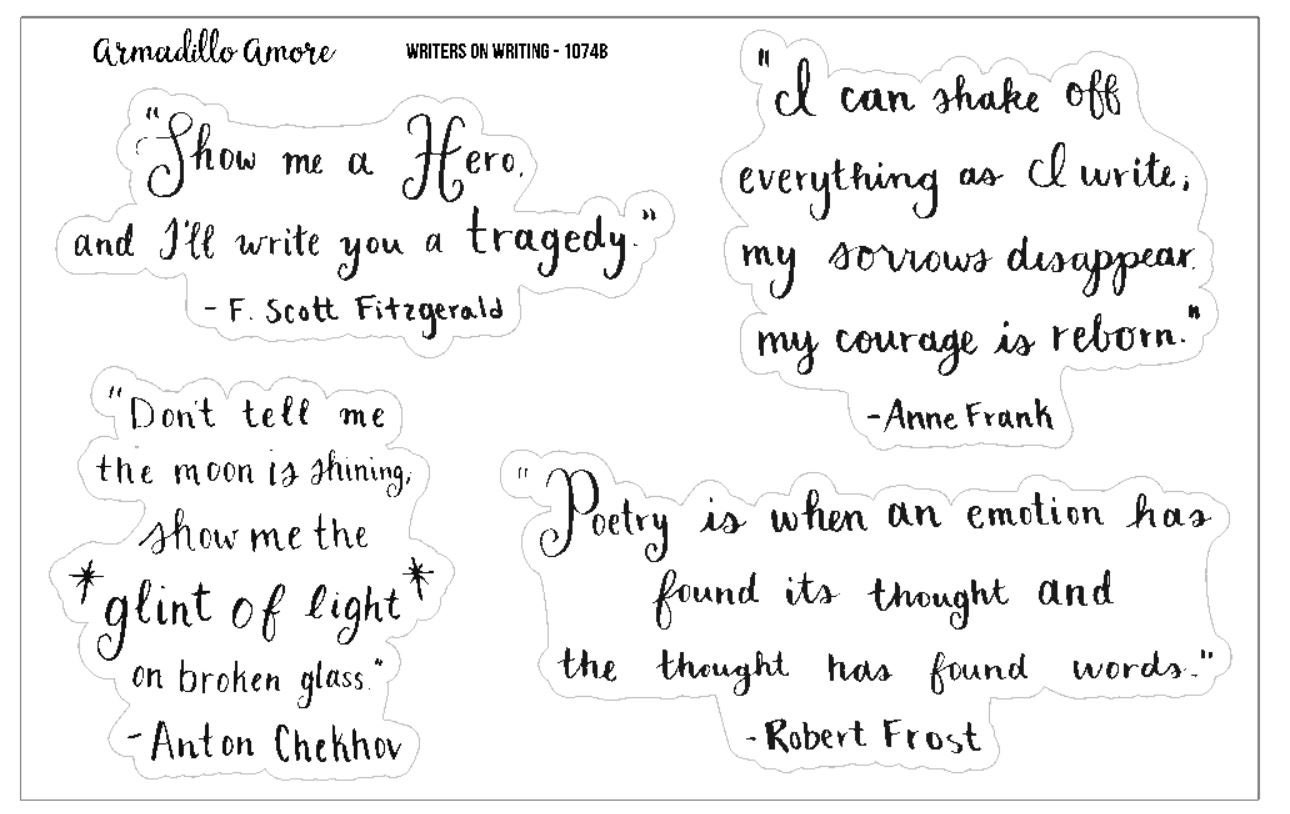 Armadillo Amore
WRITERS ON WRITING - 1074B
"Show me a Hero,
and I'll write you a tragedy."
- F. Scott Fitzgerald
"I can shake off
everything as I write;
my sorrows disappear.
my courage is reborn."
-Anne Frank
"Don't tell me
the moon is shining;
show me the
*glint of light*
on broken glass."
-Anton Chekhov
"Poetry is when an emotion has
found its thought and
the thought has found words."
-Robert Frost